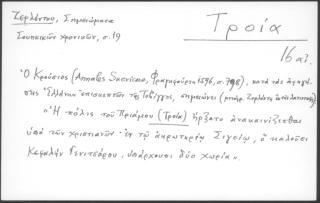 Ζερλέντου, Σημειώματα
Σουπικῶν χρονικῶν, σ. 19
Τροία
16 αἰ.
Ὁ Κρούσιος (Annales Suevicae, Φραγκφούρτη 1596, σ. 798), κατὰ τὰς ἀφηγή-
σεις Ἕλληνος ἐπισκέπτου τῆς Τυβίγγης, σημειώνει (μετάφρ. Ζερλέντη
"Ἡ πόλις τοῦ Πριάμου (Τροία) ἤρξατο ἀνακαινίζεσθαι
ὑπὸ τῶν χριστιανῶν· ἐν τῷ ἀκρωτηρίῳ Σιγείῳ, ὃ καλοῦσι
Κεφαλὴν Γενιτσάρου, ὑπάρχουσι δύο χωρία".